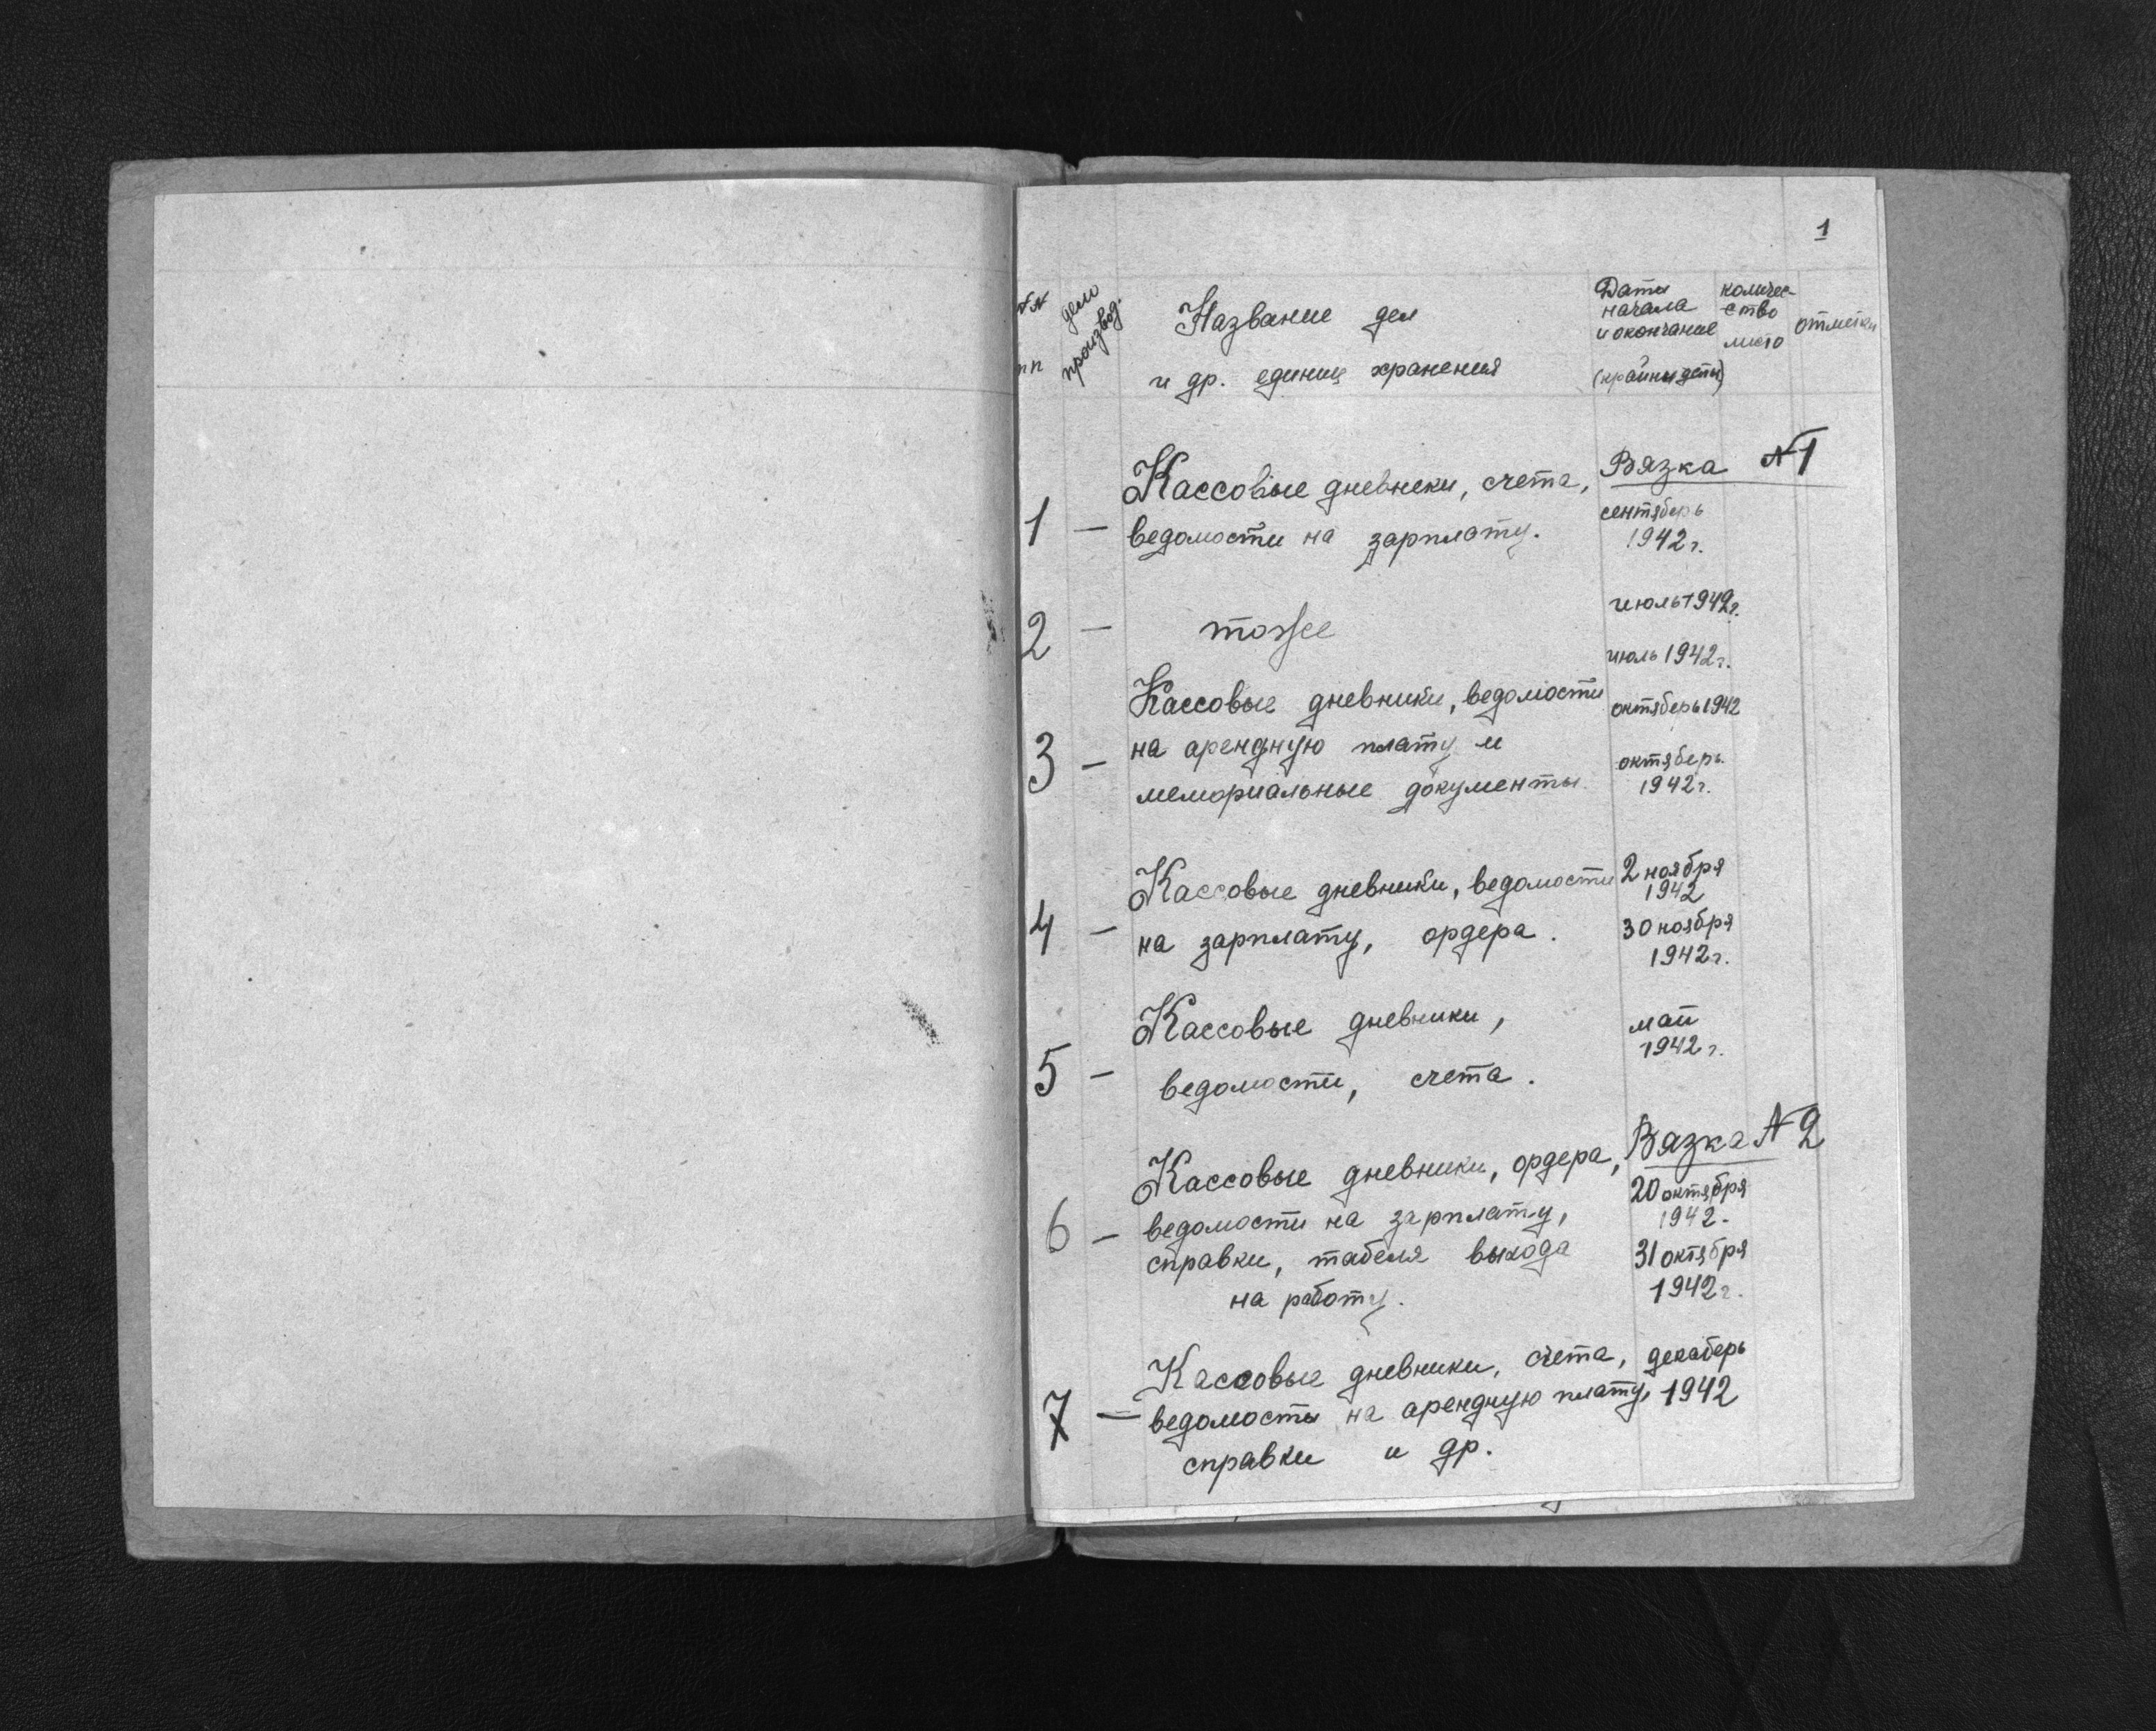 1
№№ пп
дело производ.
Название дел
и др. единиц хранения
Даты
начала
и окончание
(крайные даты)
количес-
ство
листо
отметки
Вязка №1
1 — Кассовые дневники, счета,
ведомости на зарплату.
сентябрь
1942 г.
2 — тоже
июль 1942г.
июль 1942г.
3 — Кассовые дневники, ведомости
на арендную плату и
мемориальные документы.
октябрь 1942
октябрь
1942г.
4 — Кассовые дневники, ведомости
на зарплату, ордера.
2 ноября
1942
30 ноября
1942г.
5 — Кассовые дневники,
ведомости, счета.
май
1942 г.
Вязка № 2
6 — Кассовые дневники, ордера,
ведомости на зарплату,
справки, табеля выхода
на работу.
20 октября
1942.
31 октября
1942г.
7 — Кассовые дневники, счета,
ведомость на арендную плату,
справки и др.
декабрь
1942